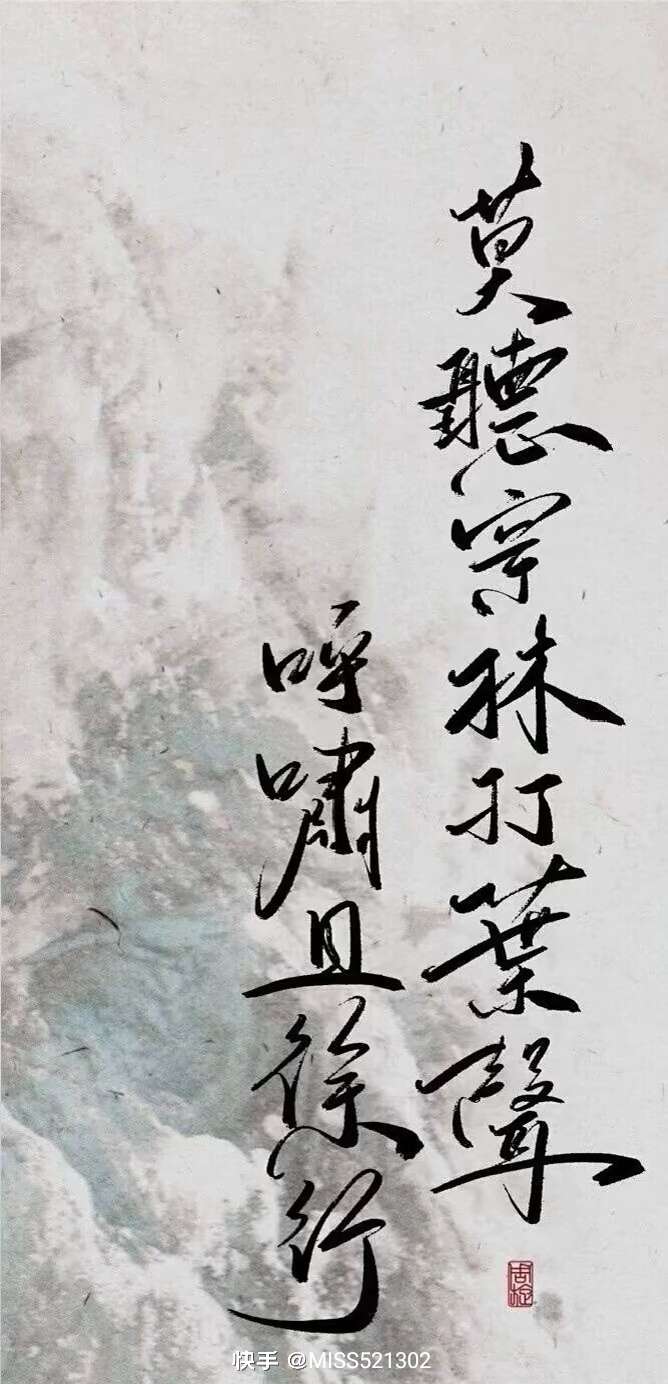 莫聽穿林打葉聲
呼嘯且徐行
快手 @MISS521302